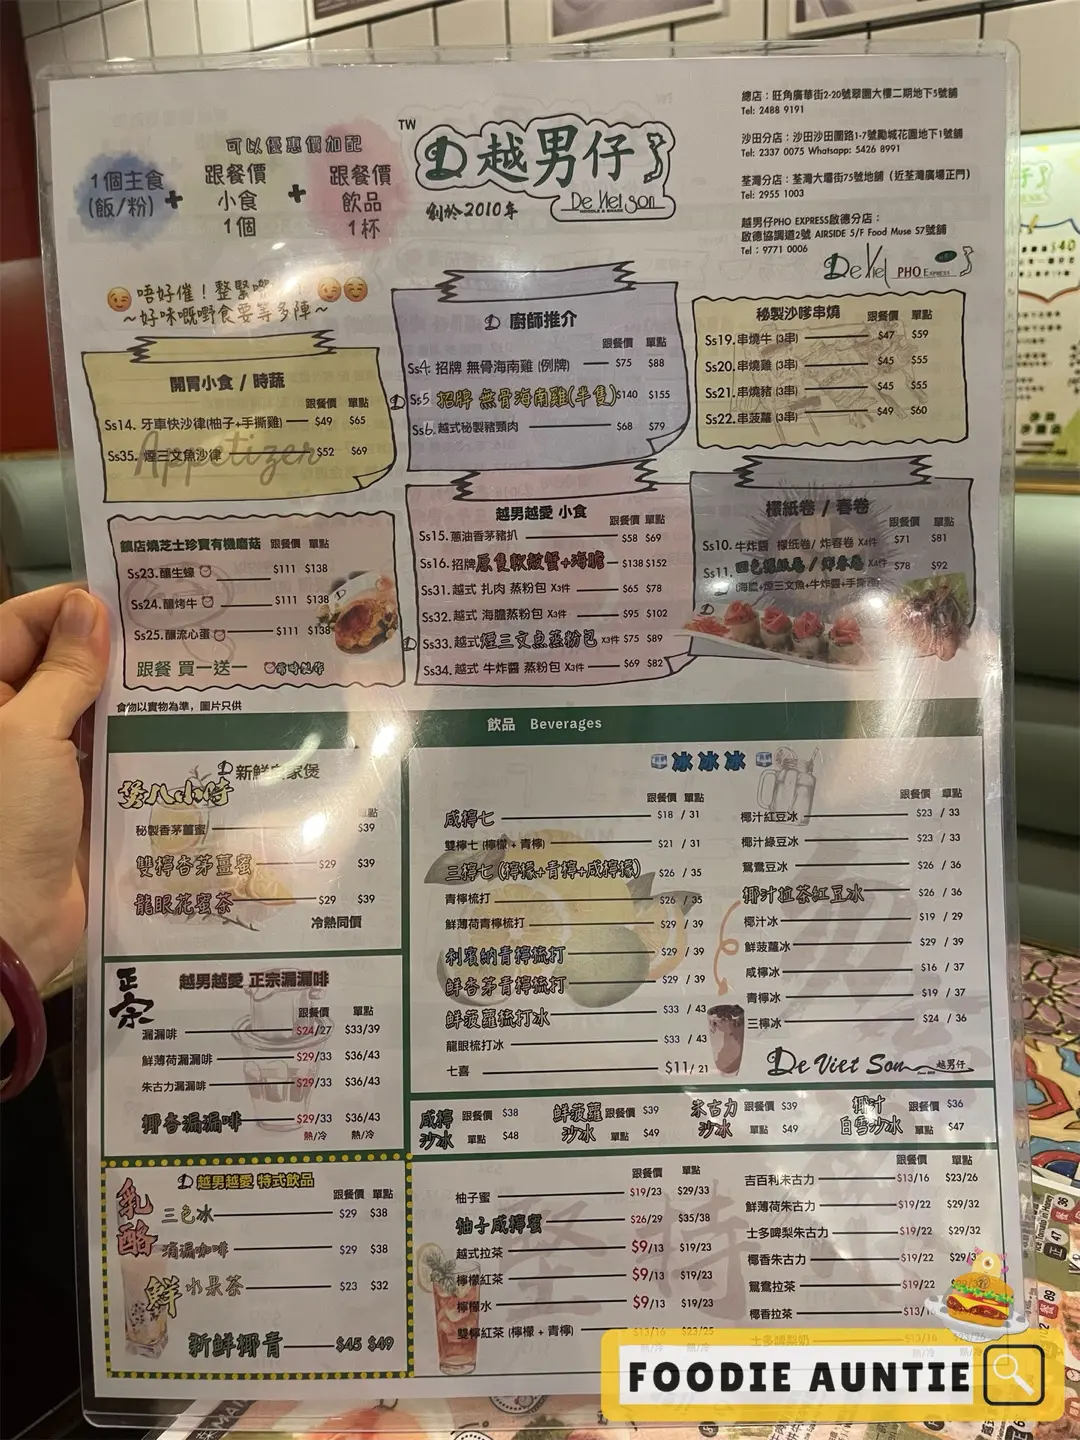 總店：旺角廣華街2-20號翠園大樓二期地下5號舖
Tel: 2488 9191
沙田分店：沙田沙田圍路1-7號勵城花園地下1號舖
Tel: 2337 0075 Whatsapp: 5426 8991
荃灣分店：荃灣大壩街75號地舖（近荃灣廣場正門）
Tel: 2955 1003
越男仔PHO EXPRESS啟德分店：
啟德協調道2號 AIRSIDE 5/F Food Muse S7號舖
Tel：9771 0006
De Viet PHO EXPRESS
TW
D越男仔
De Viet Son
創於2010年
可以優惠價加配
1個主食
(飯/粉)
+
跟餐價
小食
1個
+
跟餐價
飲品
1杯
唔好催！整緊
～好味嘅嘢食要等多陣～
開胃小食 / 時蔬
跟餐價 單點
Ss14. 牙車快沙律(柚子+手撕雞) $49 $65
Ss35. 煙三文魚沙律 $52 $69
Appetizer
D 廚師推介
跟餐價 單點
Ss4. 招牌 無骨海南雞 (例牌) $75 $88
D Ss5. 招牌 無骨海南雞(半隻) $140 $155
Ss6. 越式秘製豬頸肉 $68 $79
秘製沙嗲串燒 跟餐價 單點
Ss19. 串燒牛 (3串) $47 $59
Ss20. 串燒雞 (3串) $45 $55
Ss21. 串燒豬 (3串) $45 $55
Ss22. 串菠蘿 (3串) $49 $60
鎮店燒芝士珍寶有機蘑菇 跟餐價 單點
Ss23. 釀生蠔 $111 $138
Ss24. 釀烤牛 $111 $138
Ss25. 釀流心蛋 $111 $138
跟餐 買一送一 需時製作
越男越愛 小食
跟餐價 單點
Ss15. 蔥油香茅豬扒 $58 $69
Ss16. 招牌原隻軟殼蟹+海膽 $138 $152
Ss31. 越式 扎肉 蒸粉包 X3件 $65 $78
Ss32. 越式 海膽蒸粉包 X3件 $95 $102
D Ss33. 越式煙三文魚蒸粉包 X3件 $75 $89
Ss34. 越式 牛炸醬 蒸粉包 X3件 $69 $82
檬紙卷 / 春卷
跟餐價 單點
Ss10. 牛炸醬 檬紙卷/ 炸春卷 X4件 $71 $81
Ss11. 四色檬紙卷 / 炸春卷 X4件 $78 $92
D (海膽+煙三文魚+牛炸醬+手撕雞)
食物以實物為準，圖片只供
飲品 Beverages
D 新鮮自家煲
煲八小時
單點
秘製香茅薑蜜 $39
雙檸香茅薑蜜 $29 $39
龍眼花蜜茶 $29 $39
冷熱同價
正宗
越男越愛 正宗滴滴啡
跟餐價 單點
滴滴啡 $24/27 $33/39
鮮薄荷滴滴啡 $29/33 $36/43
朱古力滴滴啡 $29/33 $36/43
椰香滴滴啡 $29/33 $36/43
熱/冷 熱/冷
乳酪
D 越男越愛 特式飲品
跟餐價 單點
三色冰 $29 $38
滴滴咖啡 $29 $38
鮮水果茶 $23 $32
新鮮椰青 $45 $49
冰冰冰
跟餐價 單點
咸檸七 $18 / 31
雙檸七 (檸檬 + 青檸) $21 / 31
三檸七 (檸檬+青檸+咸檸檬) $26 / 35
青檸梳打 $26 / 35
鮮薄荷青檸梳打 $29 / 39
利賓納青檸梳打 $29 / 39
鮮香茅青檸梳打 $29 / 39
鮮菠蘿梳打冰 $33 / 43
龍眼梳打冰 $33 / 43
七喜 $11/ 21
跟餐價 單點
椰汁紅豆冰 $23 / 33
椰汁綠豆冰 $23 / 33
鴛鴦豆冰 $26 / 36
椰汁拉茶紅豆冰 $26 / 36
椰汁冰 $19 / 29
鮮菠蘿冰 $29 / 39
咸檸冰 $16 / 37
青檸冰 $19 / 37
三檸冰 $24 / 36
De Viet Son 越男仔
咸檸沙冰 跟餐價 $38 單點 $48
鮮菠蘿沙冰 跟餐價 $39 單點 $49
朱古力沙冰 跟餐價 $39 單點 $49
椰汁白雪沙冰 跟餐價 $36 單點 $47
跟餐價 單點
柚子蜜 $19/23 $29/33
柚子咸檸蜜 $26/29 $35/38
越式拉茶 $9/13 $19/23
檸檬紅茶 $9/13 $19/23
檸檬水 $9/13 $19/23
雙檸紅茶 (檸檬 + 青檸) $13/16 $23/25
跟餐價 單點
吉百利朱古力 $13/16 $23/26
鮮薄荷朱古力 $19/22 $29/32
士多啤梨朱古力 $19/22 $29/32
椰香朱古力 $19/22
鴛鴦拉茶 $19/22
椰香拉茶
士多啤梨奶
FOODIE AUNTIE